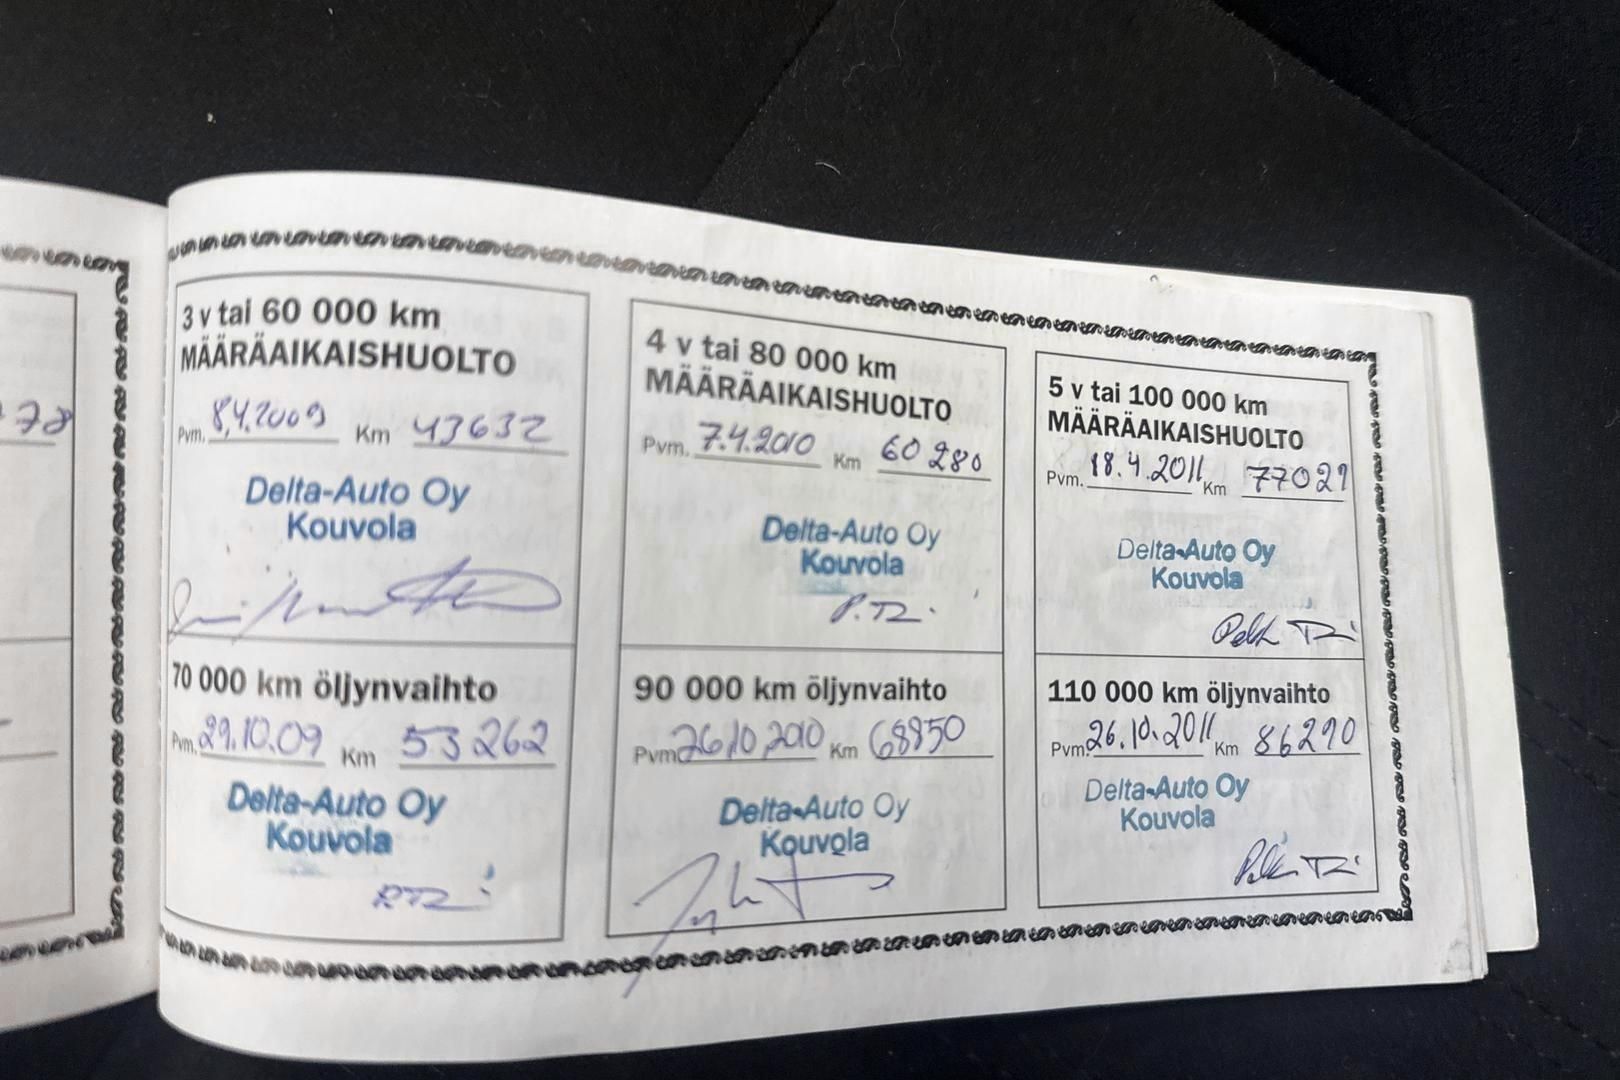 78
3 v tai 60 000 km
MÄÄRÄAIKAISHUOLTO
Pvm. 8.4.2009 Km 43632
Delta-Auto Oy
Kouvola
70 000 km öljynvaihto
Pvm. 29.10.09 Km 53262
Delta-Auto Oy
Kouvola
4 v tai 80 000 km
MÄÄRÄAIKAISHUOLTO
Pvm. 7.4.2010 Km 60 280
Delta-Auto Oy
Kouvola
90 000 km öljynvaihto
Pvm 26.10.2010 Km 68850
Delta-Auto Oy
Kouvola
5 v tai 100 000 km
MÄÄRÄAIKAISHUOLTO
Pvm. 18.4.2011 Km 77021
Delta-Auto Oy
Kouvola
110 000 km öljynvaihto
Pvm. 26.10.2011 Km 86290
Delta-Auto Oy
Kouvola